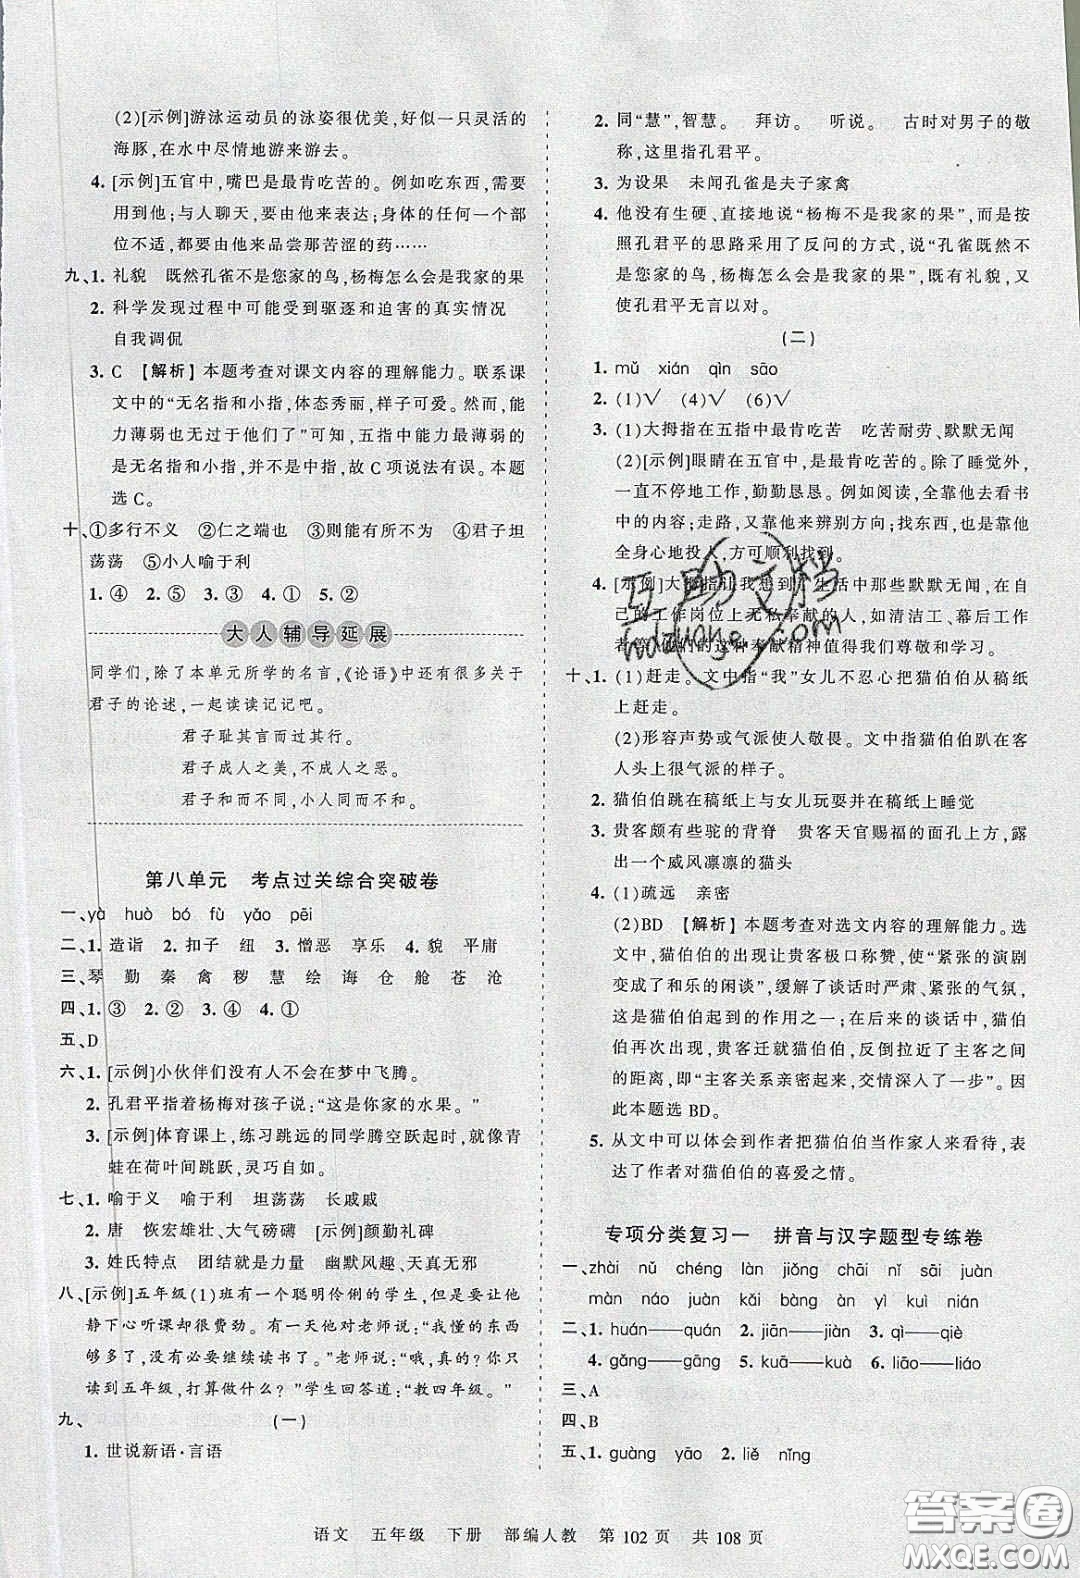 (2)[示例]游泳运动员的泳姿很优美,好似一只灵活的
海豚,在水中尽情地游来游去。
4. [示例]五官中,嘴巴是最肯吃苦的。例如吃东西,需要
用到他;与人聊天,要依靠他来表达;身体的任何一个部
位不适,都要由他来品尝那苦涩的药……
九、1. 礼貌 既然孔雀不是您家的鸟,杨梅怎么会是我家的果
2. 科学发现过程中可能受到驱逐和迫害的真实情况
自我调侃
3. C 【解析】本题考查对课文内容的理解能力。联系课
文中的“无名指和小指,体态秀丽,样子可爱。然而,能
力薄弱也无过于他们了”可知,五指中能力最薄弱的
是无名指和小指,并不是中指,故C项说法有误。本题
选C。
十、①多行不义 ②仁之端也 ③则能有所不为 ④君子坦
荡荡 ⑤小人喻于利
1. ④ 2. ⑤ 3. ③ 4. ① 5. ②
大人辅导延展
同学们,除了本单元所学的名言,《论语》中还有很多关于
君子的论述,一起读读记记吧。
君子耻其言而过其行。
君子成人之美,不成人之恶。
君子和而不同,小人同而不和。
第八单元 考点过关综合突破卷
一、yà huò bó fù yǎo pēi
二、1. 造诣 2. 扣子 纽 3. 憎恶 享乐 4. 貌 平庸
三、琴 勤 秦 禽 秽 慧 绘 诲 仓 舱 苍 沧
四、1. ③ 2. ② 3. ② 4. ①
五、D
六、1. [示例]小伙伴们没有人不会在梦中飞腾。
2. 孔君平指着杨梅对孩子说:“这是你家的水果。”
3. [示例]体育课上,练习跳远的同学腾空跃起时,就像青
蛙在荷叶间跳跃,灵巧自如。
七、1. 喻于义 喻于利 坦荡荡 长戚戚
2. 唐 恢宏雄壮、大气磅礴 [示例]颜勤礼碑
3. 姓氏特点 团结就是力量 幽默风趣、天真无邪
八、[示例]五年级(1)班有一个聪明伶俐的学生,但是要让他
静下心听课却很费劲。有一天他对老师说:“我懂的东西
够多了,没有必要继续读书了。”老师说:“哦,真的?你只
读到五年级,打算做什么?”学生回答道:“教四年级。”
九、 (一)
1. 世说新语·言语
2. 同“慧”,智慧。 拜访。 听说。 古时对男子的敬
称,这里指孔君平。
3. 为设果 未闻孔雀是夫子家禽
4. 他没有生硬、直接地说“杨梅不是我家的果”,而是按
照孔君平的思路采用了反问的方式,说“孔雀不是您
家的鸟,杨梅怎么会是我家的果”,既有礼貌,又
使孔君平无言以对。
(二)
1. mǔ xián qìn sāo
2. (1)√ (4)√ (6)√
3. (1)大拇指在五指中最肯吃苦 吃苦耐劳、默默无闻
(2)[示例]眼睛在五官中,是最肯吃苦的。除了睡觉外,
一直不停地工作,勤勤恳恳。例如阅读,全靠他去看书
中的内容;走路,又靠他来辨别方向;找东西,也需要他
全身心地投入,方可顺利找到。
4. [示例]大拇指让我想到了生活中那些默默无闻,在自
己的工作岗位上无私奉献的人,如清洁工、幕后工作
者。他们的这种奉献精神值得我们尊敬和学习。
十、1. (1)赶走。文中指“我”女儿不忍心把猫伯伯从稿纸
上赶走。
(2)形容声势或气派使人敬畏。文中指猫伯伯趴在客
人头上很气派的样子。
2. 猫伯伯跳在稿纸上与女儿玩耍并在稿纸上睡觉
3. 贵客颇有些驼的背脊 贵客天官赐福的面孔上方,露
出一个威风凛凛的猫头
4. (1)疏远 亲密
(2)BD 【解析】本题考查对选文内容的理解能力。选
文中,猫伯伯的出现让贵客极口称赞,使“紧张的演剧
变成了和乐的闲谈”,缓解了谈话时严肃、紧张的气氛,
这是猫伯伯起到的作用之一;在后来的谈话中,猫伯
伯再次出现,贵客迁就猫伯伯,反倒拉近了主客之间
的距离,即“主客关系亲密起来,交情深入了一步”。因
此本题选BD。
5. 从文中可以体会到作者把猫伯伯当作家人来看待,表
达了作者对猫伯伯的喜爱之情。
专项分类复习一 拼音与汉字题型专练卷
一、zhài nǔ chéng làn jiǒng chāi nǐ sāi juàn
màn náo juàn kǎi bàng àn yì kuì nián
二、1. huán——quán 2. jiān——jiàn 3. qì——qiè
4. gǎng——gāng 5. kuā——kuà 6. liāo——liáo
三、A
四、B
五、1. guàng yāo 2. liě nǐng
语文 五年级 下册 部编人教 第102页 共108页
互助文档
hdzuoye.com
答案圈
MXQE.COM